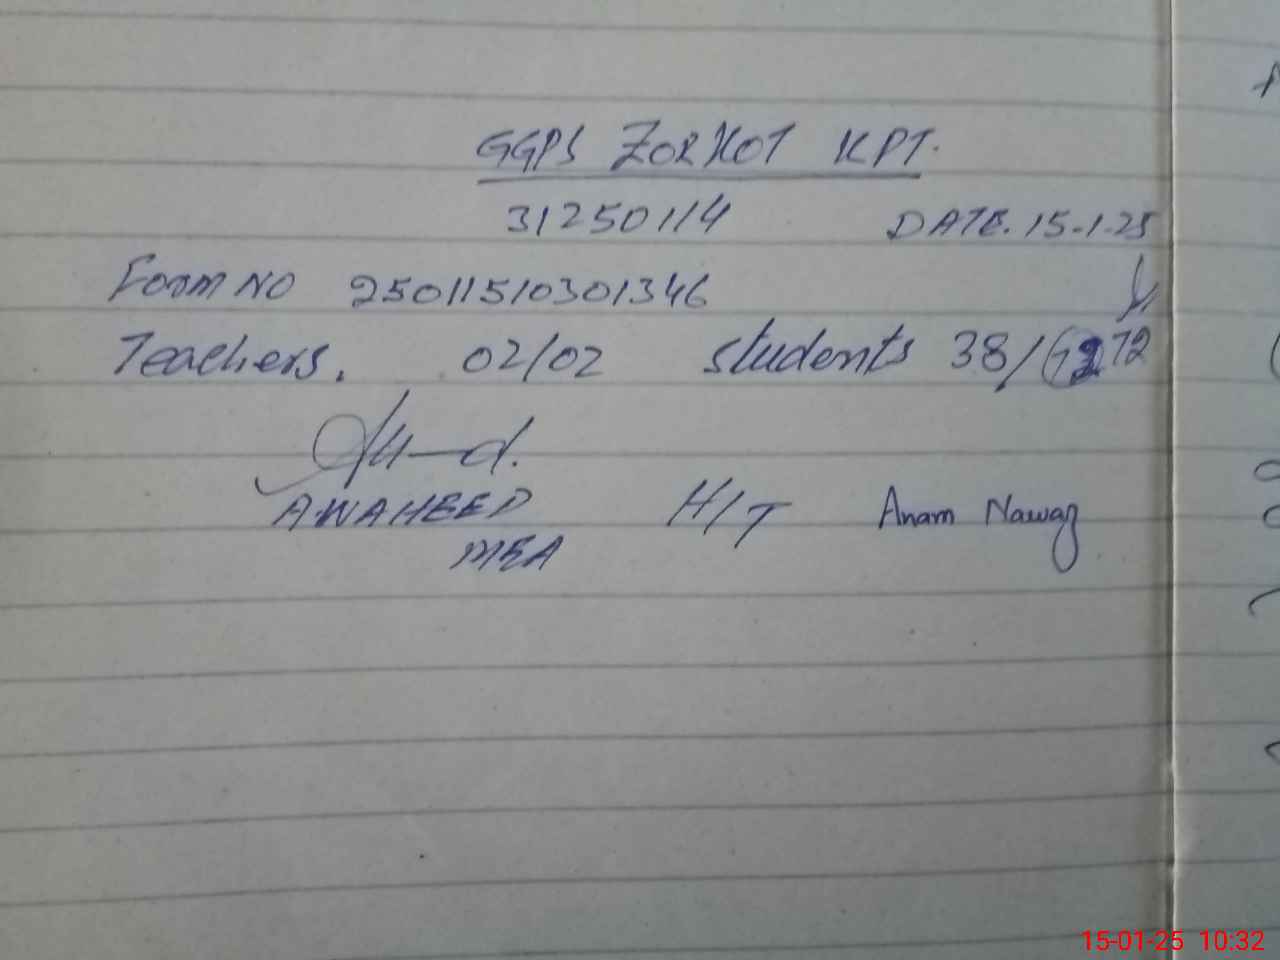 GGPS ZORKOT KPT.
31250114 DATE. 15-1-25
Form NO 25011510301346
Teachers. 02/02 students 38/72
A.WAHEED H/T Anam Nawaz
MEA
15-01-25 10:32